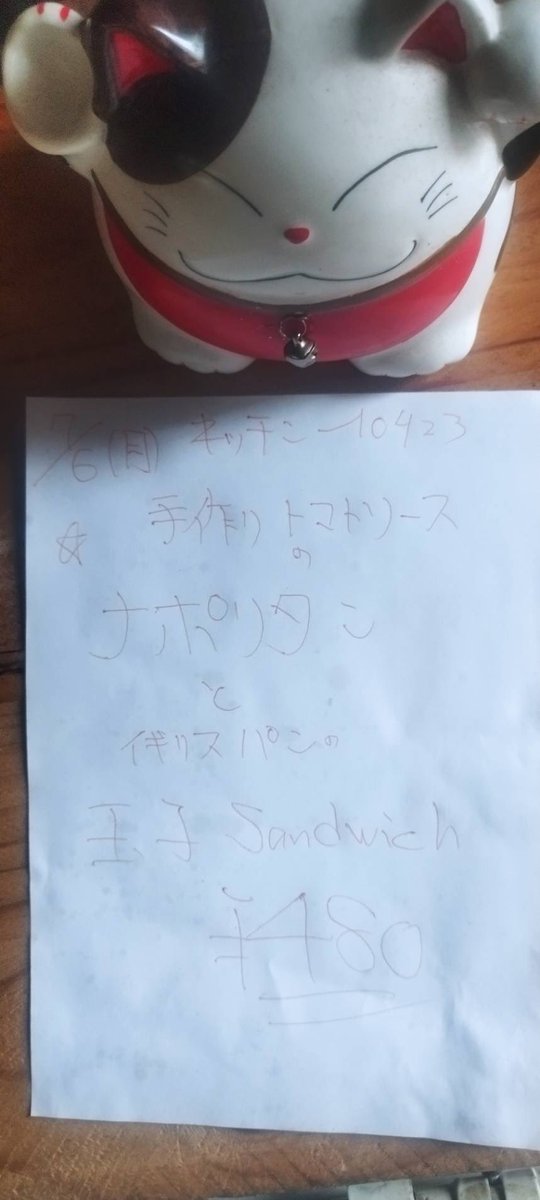 7/6(日) キッチン10423
☆ 手作りトマトソース
の
ナポリタン
と
イギリスパンの
玉子 Sandwich
¥480